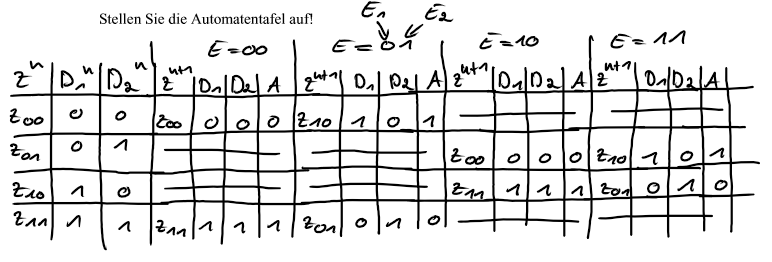 Stellen Sie die Automatentafel auf!
E₁ E₂
E=00 E=01 E=10 E=11
Zⁿ D₁ⁿ D₂ⁿ Zⁿ⁺¹ D₁ D₂ A Zⁿ⁺¹ D₁ D₂ A Zⁿ⁺¹ D₁ D₂ A Zⁿ⁺¹ D₁ D₂ A
Z00 0 0 Z00 0 0 0 Z10 1 0 1
Z01 0 1 Z00 0 0 0 Z10 1 0 1
Z10 1 0 Z11 1 1 1 Z01 0 1 0
Z11 1 1 Z11 1 1 1 Z01 0 1 0